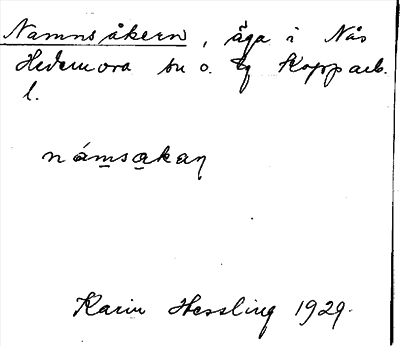 Namnsåkern, äga i Nås
Hedemora sn o. tg Kopparb.
l.
námsakaη
Karin Hessling 1929.